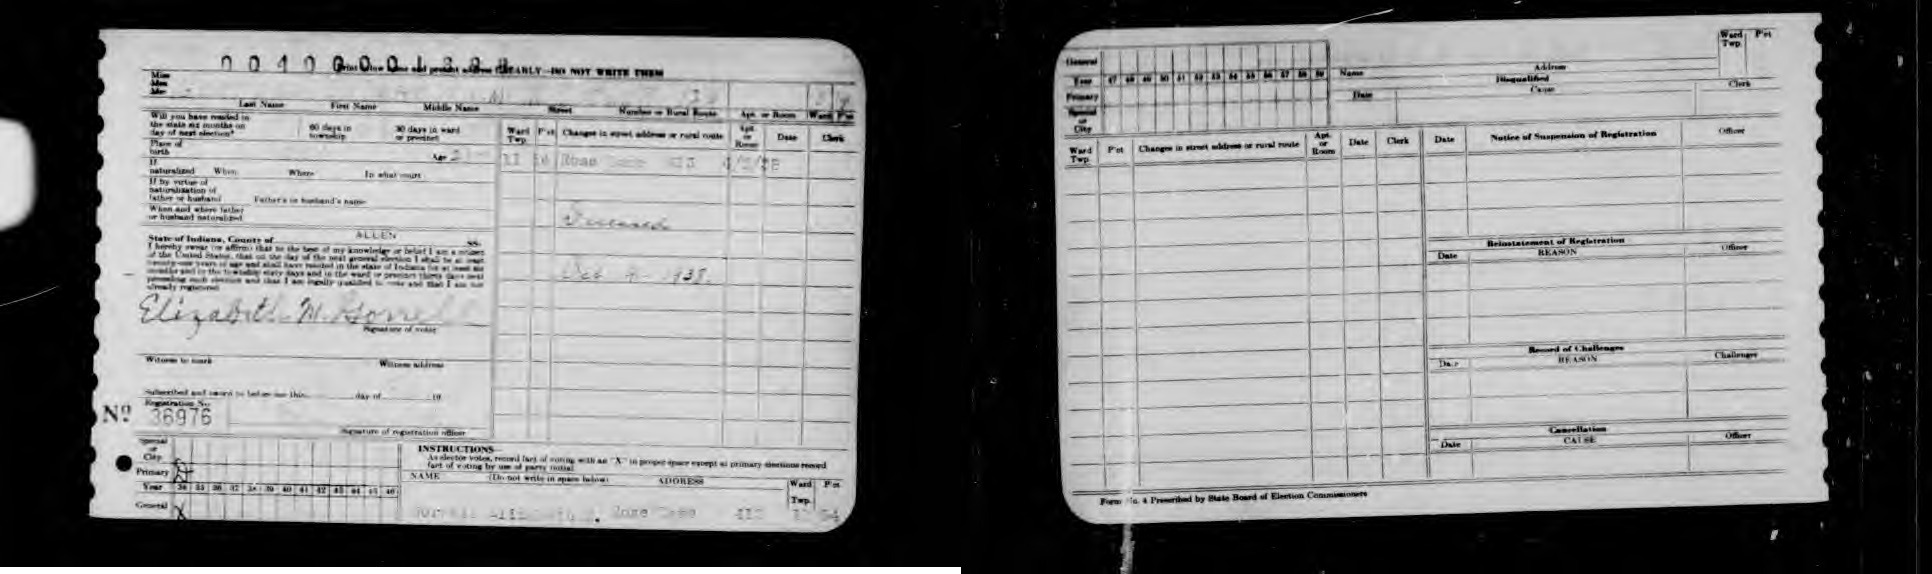 CLEARLY—DO NOT WRITE THEM
Miss
Mrs.
Mr.
Last Name First Name Middle Name Street Number or Rural Route Apt. or Room Ward P'ct
Will you have resided in
the state six months on
day of next election?
60 days in
township
30 days in ward
or precinct
Place of
birth
Age
If
naturalized When Where In what court
If by virtue of
naturalization of
father or husband Father's or husband's name
When and where father
or husband naturalized
State of Indiana, County of ALLEN SS.
I hereby swear (or affirm) that to the best of my knowledge or belief I am a citizen
of the United States, that on the day of the next general election I shall be at least
twenty-one years of age and shall have resided in the state of Indiana for at least six
months and in the township sixty days and in the ward or precinct thirty days next
preceding such election and that I am legally qualified to vote and that I am not
already registered
Elizabeth M. Gorrell
Signature of voter
Witness to mark Witness address
Subscribed and sworn to before me this day of 19
Registration No.
No 36976
Signature of registration officer
Ward
Twp.
P'ct
Changes in street address or rural route
Apt.
or
Room
Date
Clerk
Deceased
1938.
Special
or
City
Primary
Year 34 35 36 37 38 39 40 41 42 43 44 45 46
General X
INSTRUCTIONS—
As elector votes, record fact of voting with an "X" in proper space except at primary elections record
fact of voting by use of party initial
NAME (Do not write in space below) ADDRESS Ward Twp. P'ct
General
Year 47 48 49 50 51 52 53 54 55 56 57 58 59
Primary
Special
or
City
Name Address
Ward
Twp.
P'ct
Disqualified
Date Cause Clerk
Ward
Twp.
P'ct
Changes in street address or rural route
Apt.
or
Room
Date
Clerk
Date Notice of Suspension of Registration Officer
Reinstatement of Registration
Date REASON Officer
Record of Challenges
Date REASON Challenger
Cancellation
Date CAUSE Officer
Form No. 4 Prescribed by State Board of Election Commissioners